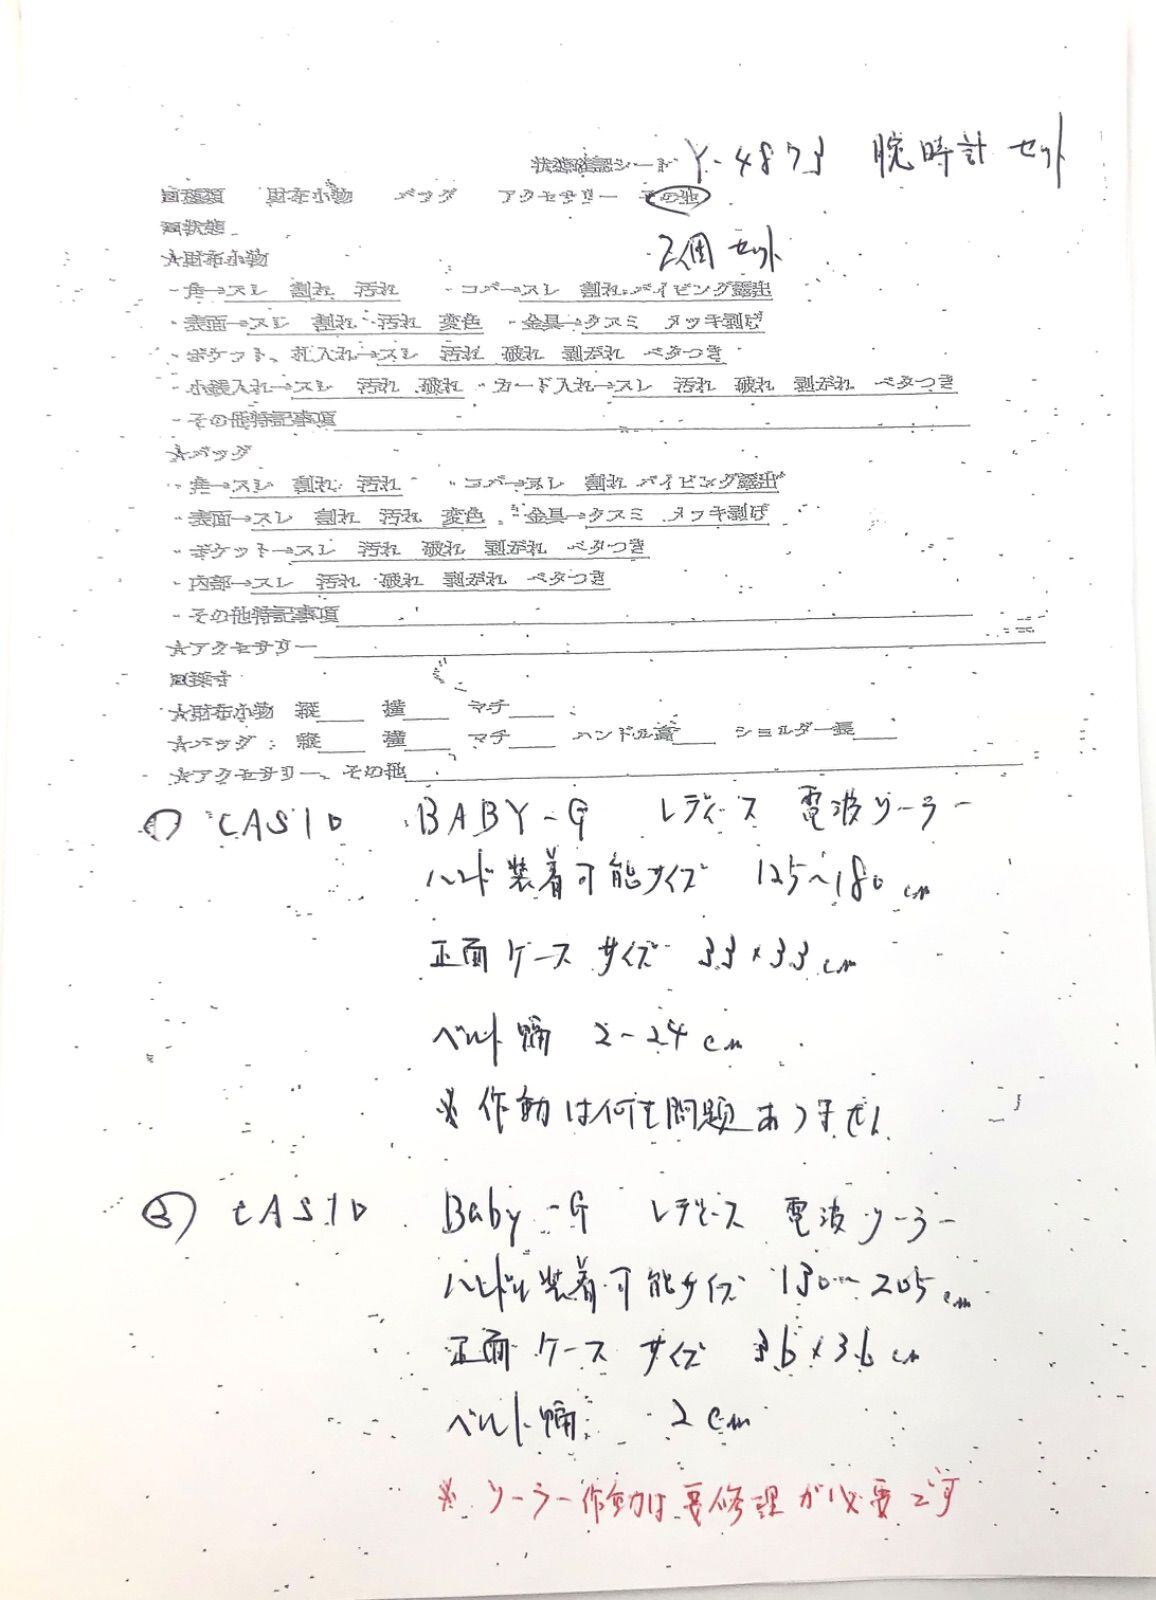 状態確認シート Y-4873 腕時計 セット
■種類 財布小物 バッグ アクセサリー その他
■状態 2個 セット
★財布小物
・角→スレ 割れ 汚れ ・コバ→スレ 割れ パイピング露出
・表面→スレ 割れ 汚れ 変色 ・金具→クスミ メッキ剥げ
・ポケット、札入れ→スレ 汚れ 破れ 剥がれ ベタつき
・小銭入れ→スレ 汚れ 破れ ・カード入れ→スレ 汚れ 破れ 剥がれ ベタつき
・その他特記事項
★バッグ
・角→スレ 割れ 汚れ ・コバ→スレ 割れ パイピング露出
・表面→スレ 割れ 汚れ 変色 ・金具→クスミ メッキ剥げ
・ポケット→スレ 汚れ 破れ 剥がれ ベタつき
・内部→スレ 汚れ 破れ 剥がれ ベタつき
・その他特記事項
★アクセサリー
■採寸
★財布小物 縦 横 マチ
★バッグ: 縦 横 マチ ハンドル高 ショルダー長
★アクセサリー、その他
① CASIO BABY-G レディース 電波ソーラー
バンド装着可能サイズ 125~180 cm
正面ケースサイズ 33×33 cm
ベルト幅 2-24 cm
※作動は何も問題ありません
② CASIO Baby-G レディース 電波ソーラー
バンド装着可能サイズ 130~205 cm
正面ケースサイズ 36×36 cm
ベルト幅 2cm
※ソーラー作動は要修理が必要です